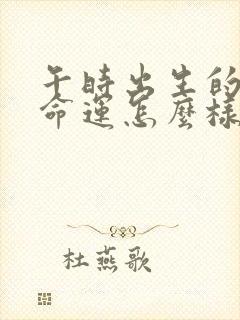 午時出生的
命運怎麼樣
杜燕歌